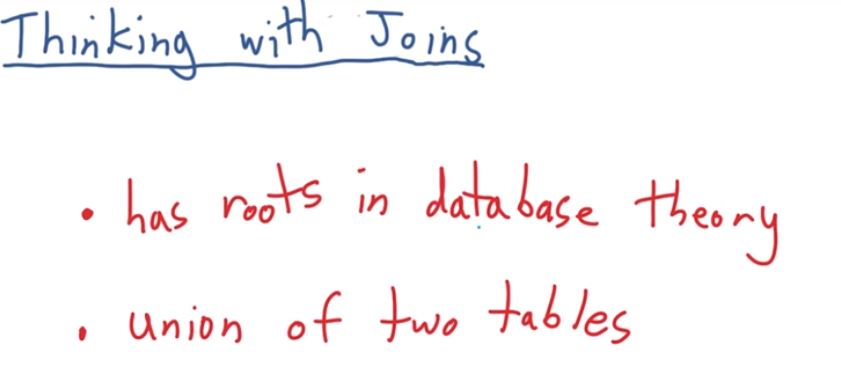 Thinking with Joins
• has roots in database theory
• union of two tables